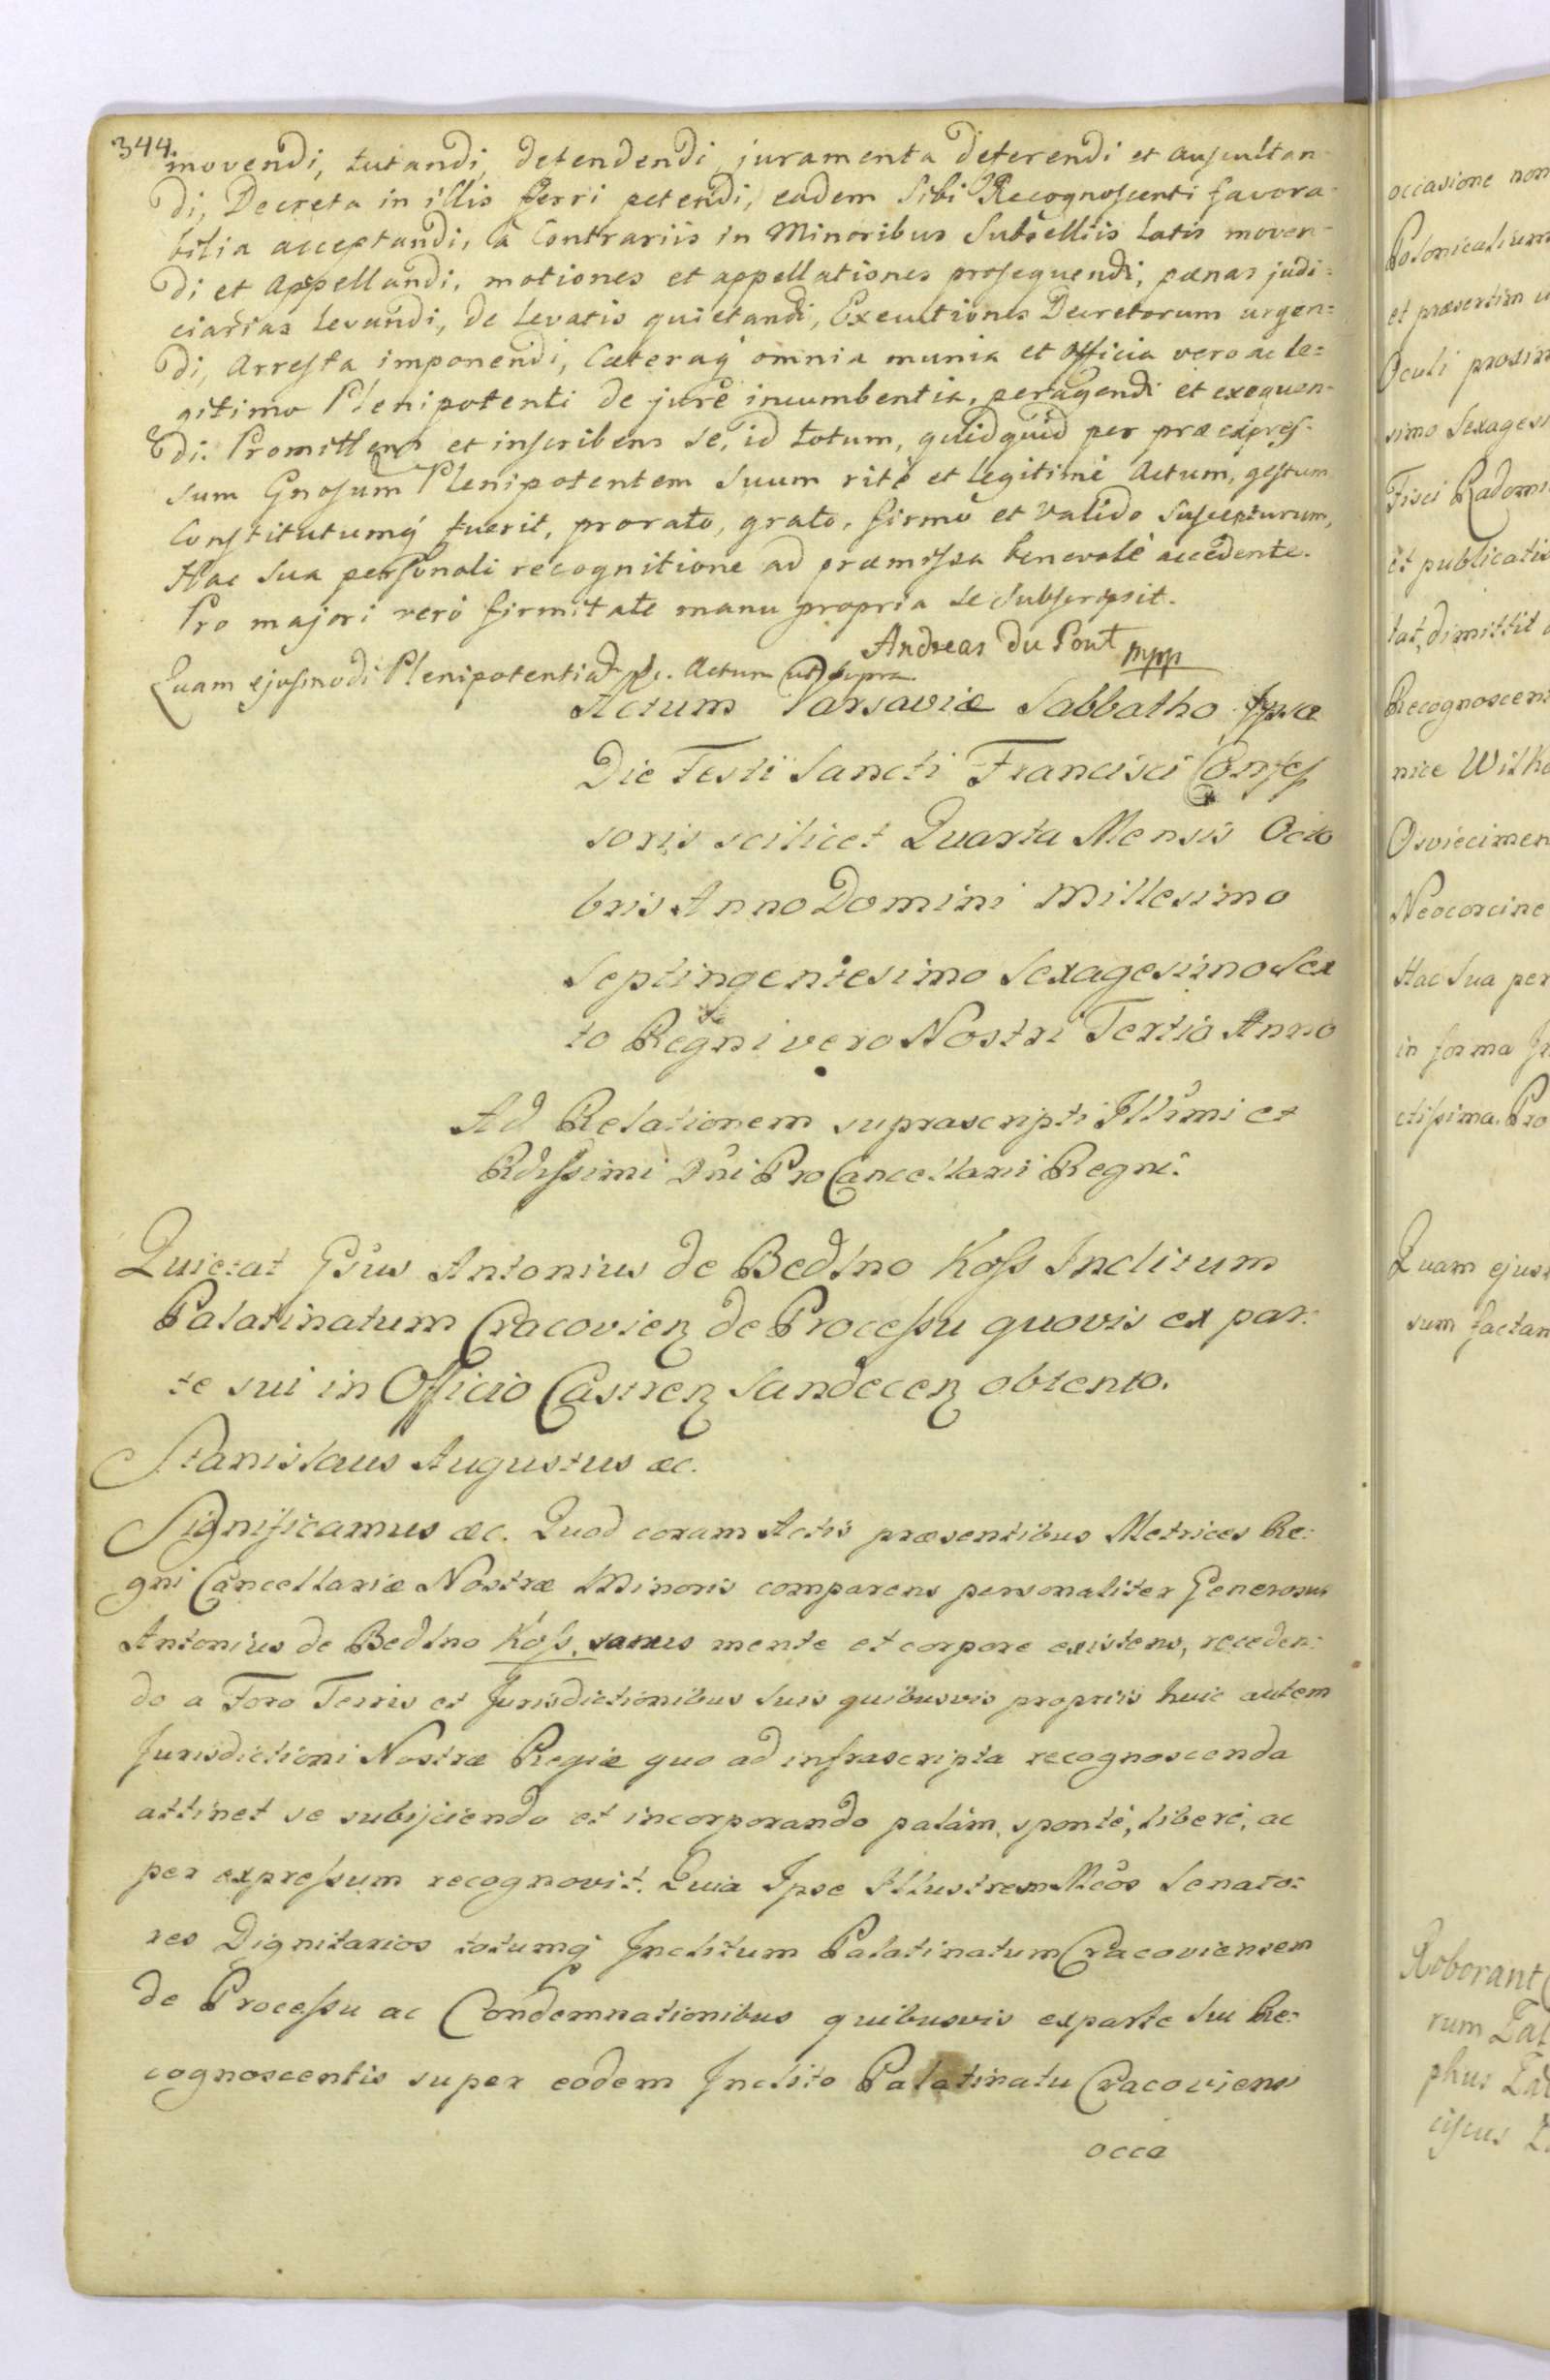 344.
movendi, tutandi, defendendi, juramenta deferendi et auscultan-
di, Decreta in illis ferri petendi, eadem sibi Recognoscenti favora-
bilia acceptandi, à Contrariis in Minoribus Subselliis latis moven-
di et appellandi, motiones et appellationes prosequendi, pænas judi=
ciarias levandi, de levatis quietandi, Executiones Decretorum urgen=
di, Arresta imponendi, Cæteraq omnia munia et officia vero ac le=
gitimo Plenipotenti de jure incumbentia, peragendi et exequen-
di. Promittens et inscribens se, id totum, quidquid per præexpres-
sum Gnosum Plenipotentem suum ritè et legitimè Actum, gestum
Constitutumq fuerit, prorato, grato, firmo et valido suscepturum,
Hac sua personali recognitione ad præmissa benevolè accedente.
Pro majori verò firmitate manu propria se subscripsit.
Andreas Du Pont mpp
Quam ejusmodi Plenipotentia Actum ut supra
Actum Varsaviæ Sabbatho Ipsa
Die Festi Sancti Francisci Confes
soris scilicet Quarta Mensis Octo
bris Anno Domini Millesimo
Septingentesimo Sexagesimo Sex
to Regni vero Nostri Tertio Anno
Ad Relationem suprascripti Illmi et
Rdissimi Dni ProCancellarii Regni.
Quietat Gsus Antonius de Bedlno Koss Inclitum
Palatinatum Cracovien de Processu quovis ex par:
te sui in Officio Castren Sandecen obtento.
Stanislaus Augustus æc.
Significamus æc. Quod coram Actis præsentibus Metrices Re:
gni Cancellariæ Nostræ Minoris comparens personaliter Generosus
Antonius de Bedlno Koss, sanus mente et corpore existens, receden:
do a Foro Terris et Jurisdictionibus suis quibusvis propriis huic autem
Jurisdictioni Nostræ Regiæ quo ad infrascripta recognoscenda
attinet se subijciendo et incorporando palàm, spontè, liberè, ac
per expressum recognovit. Quia Ipse Illustrem Mcos Senato:
res Dignitarios totumq Inclitum Palatinatum Cracoviensem
de Processu ac Condemnationibus quibusvis exparte sui Re:
cognoscentis super eodem Inclito Palatinatu Cracoviensi
occa
occasione non
Polonicalium
et præsertim
Oculi proxim
simo Sexagesi
Fisci Radomi
et publicatis
tat, dimittit
Recognoscen
nice Wilko
Osviecimen
Neocorcine
Hac sua per
in forma
ctissima. Pro
Quam ejus
sum factam
Roborant
rum
phus